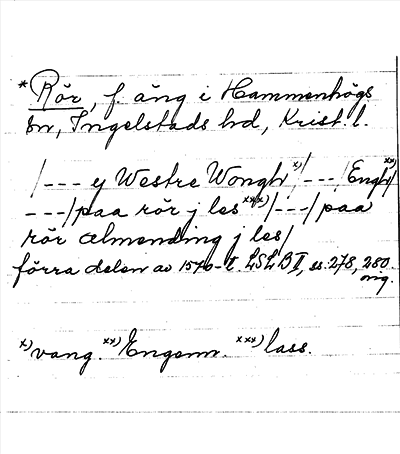 *Rör, f. äng i Hammenhögs
sn, Ingelstads hd, Krist. l.
/--- ej Westre Wongh x)/---/Engh xx)/
---/paa rör j les xxx)/---/paa
rör almending j les/
förra delen av 1570-t. LSLB I, ss. 278, 280.
orig.
x) vang. xx) Engsnn. xxx) lass.